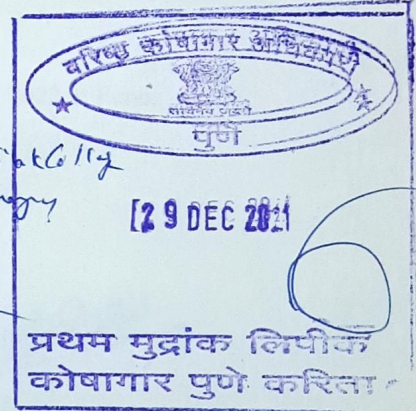 वरिष्ठ कोषागार अधिकारी
पुणे
[2 9 DEC 2021
प्रथम मुद्रांक लिपीक
कोषागार पुणे करिता